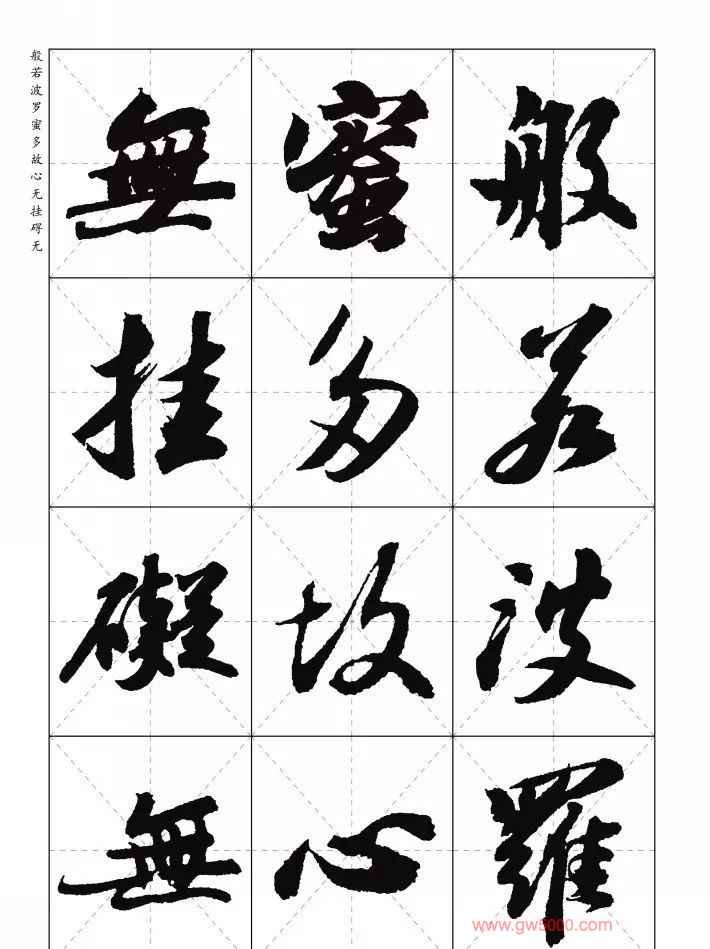 般若波罗蜜多故心无挂碍无
般若波羅
蜜多故心
無挂礙無
www.gw5000.com